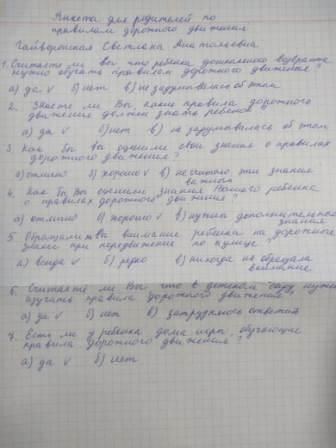 Анкета для родителей по
правилам дорожного движения
Светлана Анатольевна
1. Считаете ли вы что ребёнка дошкольного возраста
нужно обучать правилам дорожного движения?
а) да v б) нет в) не задумывалась об этом
2. Знаете ли Вы, какие правила дорожного
движения должен знать ребенок?
а) да v б) нет в) не задумывалась об этом
3. Как бы вы оценили свои знания о правилах
дорожного движения?
а) отлично б) хорошо v в) не считаю эти знания
важными
4. Как бы Вы оценили знания Вашего ребенка
о правилах дорожного движения?
а) отлично б) хорошо v в) нужны дополнительные
знания
5 Обращаете ли вы внимание ребенка на дорожные
знаки при передвижение по улице?
а) всегда v б) редко в) никогда не обращала
внимание
6. Считаете ли Вы что в детском саду нужно
изучать правила дорожного движения
а) да v б) нет в) затрудняюсь ответить
7. Есть ли у ребенка дома игры, обучающие
правила дорожного движения?
а) да v б) нет